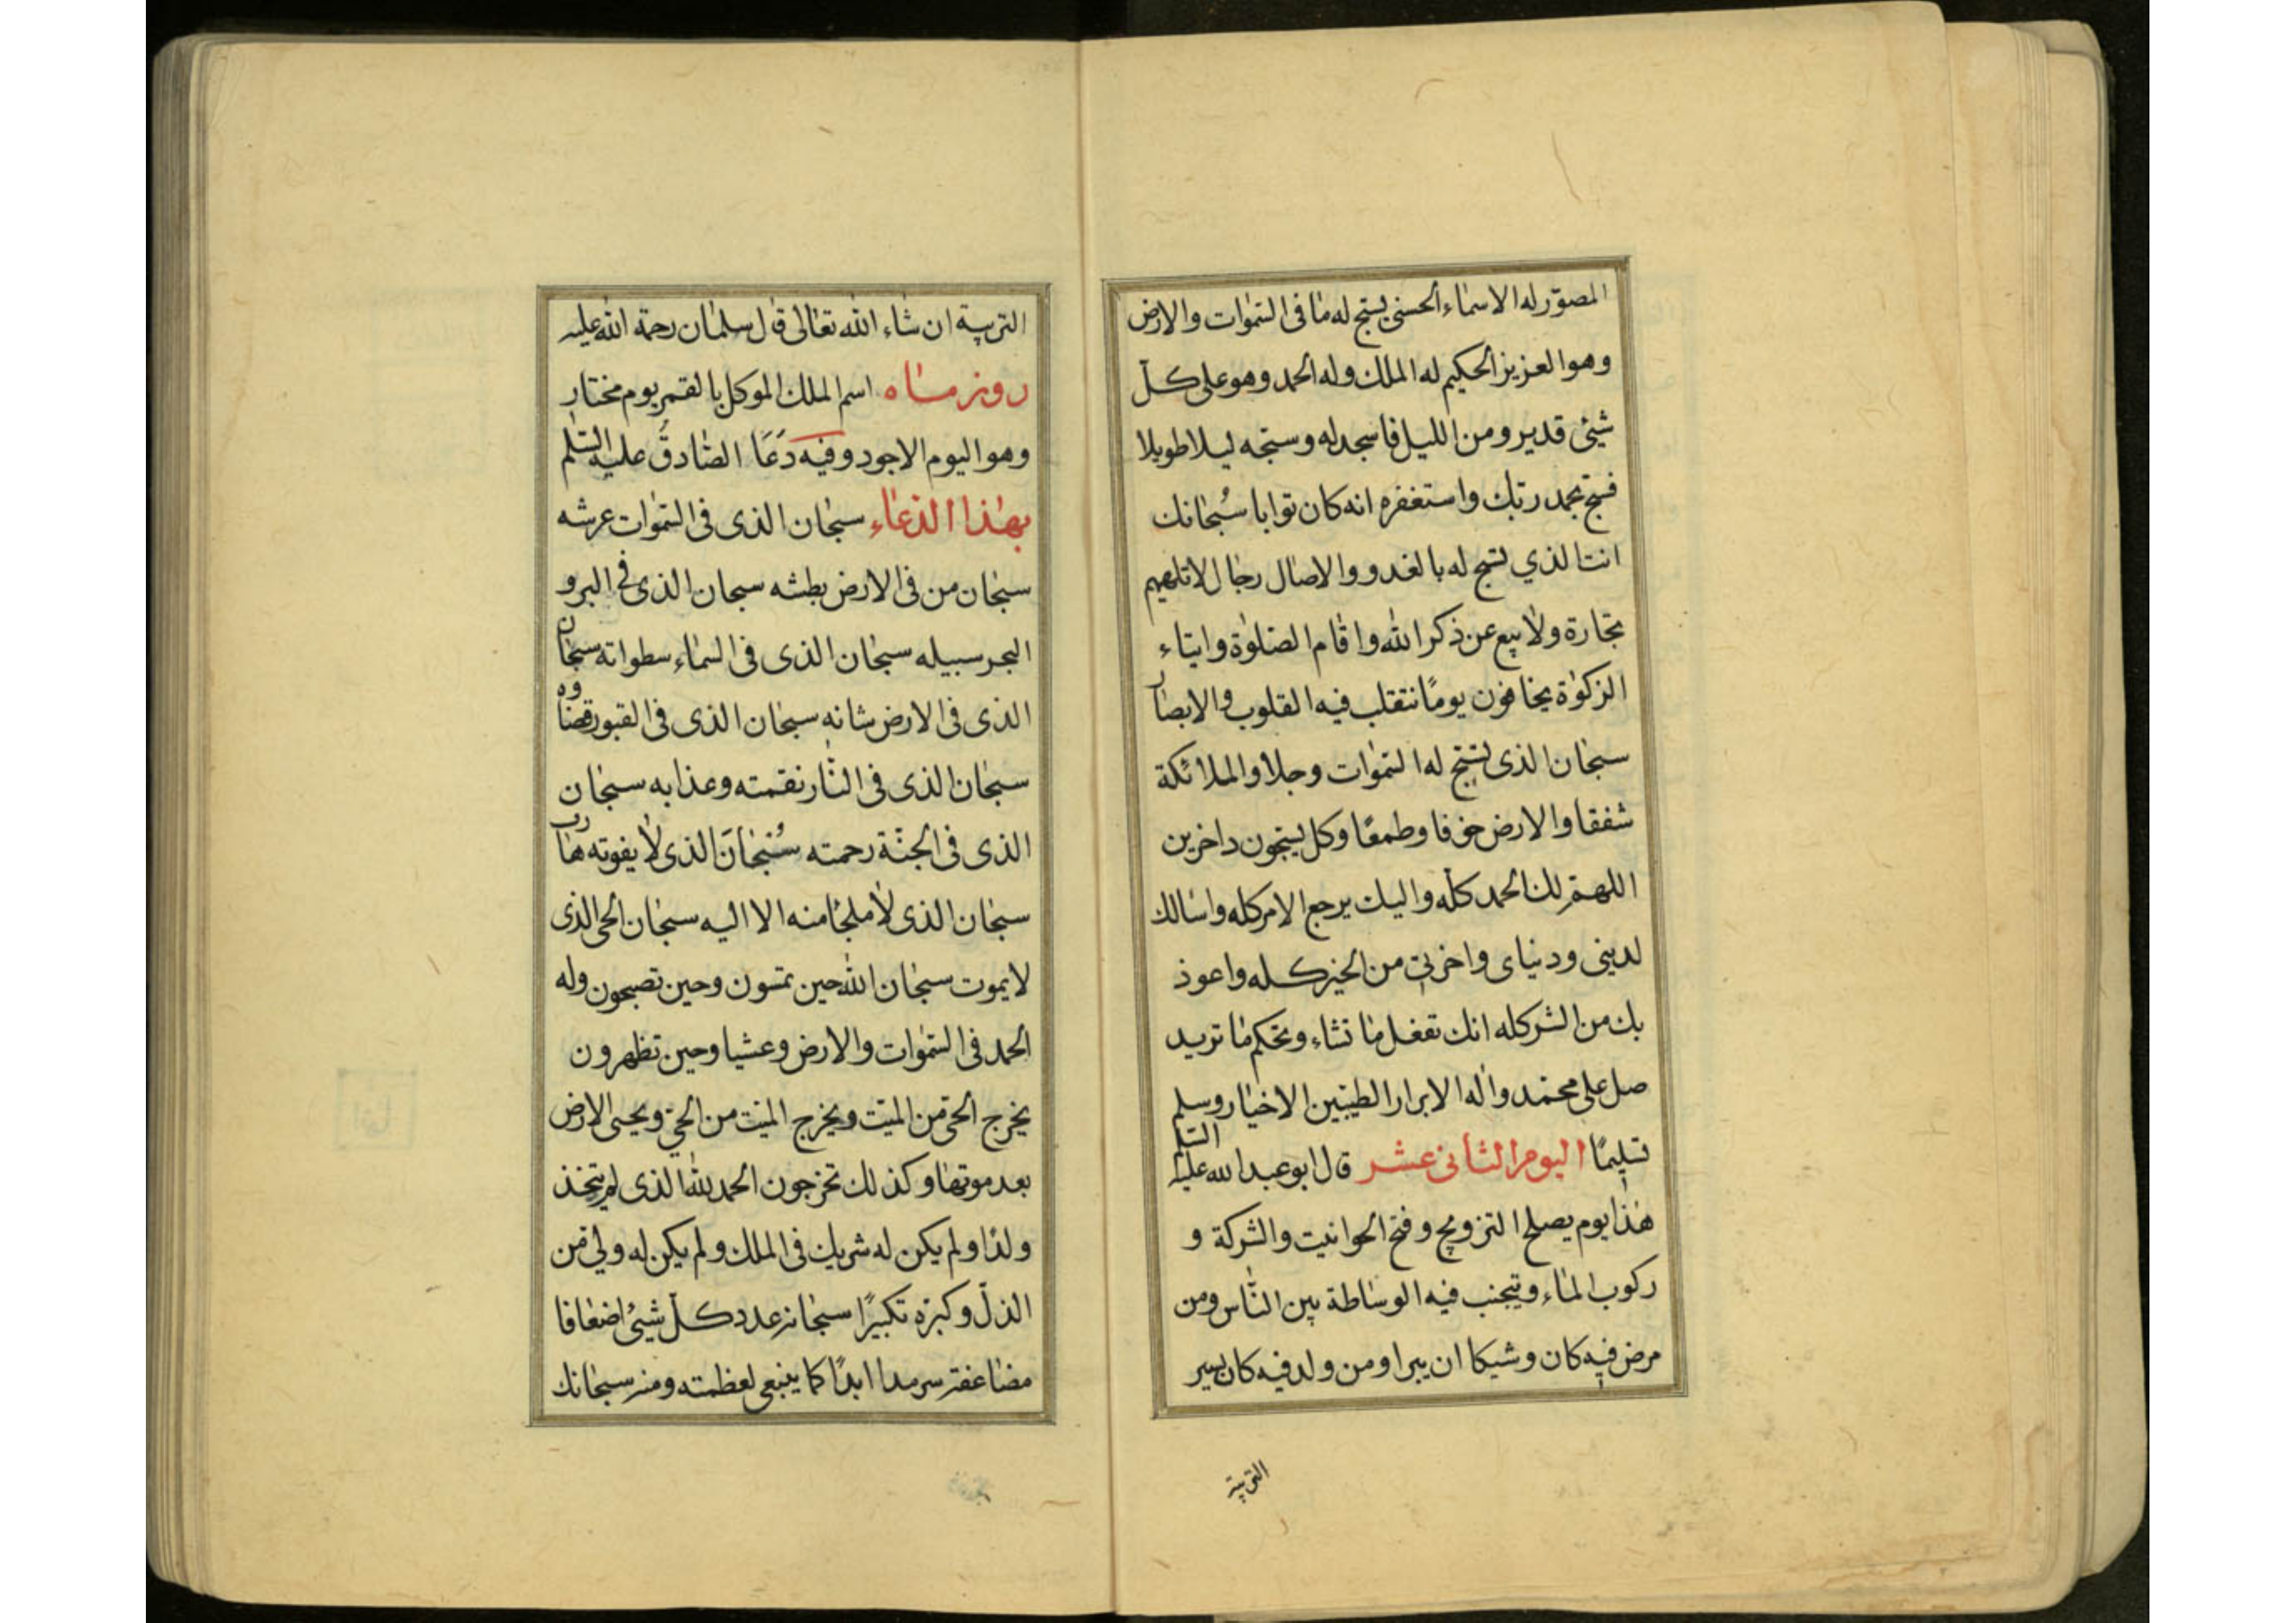 المصوّر له الاسمآء الحسنى يسبّح له مٰا فى السّمٰوات والارض
وهو العزيز الحكيم له الملك وله الحمد وهو على كلّ
شيئ قدير ومن الليل فاسجد له وسبّحه ليلا طويلا
فسبّح بحمد ربّك واستغفره انه كان توابا سُبحٰانك
انت الذي تسبّح له بالغدو والاصٰال رجٰال لا تلهيهم
تجٰارة ولٰا بيع عن ذكر الله واقٰام الصّلوٰة وايتٰاء
الزكوٰة يخٰافون يومًا تتقلب فيه القلوب والابصٰار
سبحٰان الذى تسبّح له السّمٰوات وجلا والملائكة
شفقا والارض خوفا وطمعًا وكل يسبّحون داخرين
اللهمّ لك الحمد كلّه واليك يرجع الامر كله واسٰالك
لدينى ودنياى واخرتى من الخير كله واعوذ
بك من الشر كله انك تفعل مٰا تشٰاء وتحكم مٰا تريد
صل على محمّد واٰله الابرار الطيّبين الاخيٰار وسلم
تسليمًا اليوم الثانى عشر قال ابو عبد الله عليه السّلم
هٰذا يوم يصلح التزويج وفتح الحوانيت والشركة و
ركوب المٰاء ويتجنب فيه الوسٰاطة بين النّاس ومن
مرض فيه كان وشيكا ان يبرا ومن ولد فيه كان يسير
التربية
التربية ان شٰاء الله تعٰالى قٰال سلمٰان رحمة الله عليه
روز مٰاه اسم الملك الموكل بالقمر يوم مختار
وهو اليوم الاجود وفيه دَعَا الصّٰادقُ عليه السّلم
بهٰذا الدّعٰاء سبحٰان الذى فى السّمٰوات عرشه
سبحٰان من فى الارض بطشه سبحان الذى فى البر و
البحر سبيله سبحٰان الذى فى السّمٰاء سطواته سبحٰان
الذى فى الارض شانه سبحٰان الذى فى القبور قضٰاوه
سبحٰان الذى فى النّٰار نقمته وعذابه سبحٰان
الذى فى الجنّة رحمته سُبْحٰانَ الذى لٰا يفوته هٰارب
سبحٰان الذى لٰا ملجٰا منه الا اليه سبحٰان الحى الذى
لا يموت سبحٰان الله حين تمسون وحين تصبحون وله
الحمد فى السّمٰوات والارض وعشيا وحين تظهرون
يخرج الحىّ من الميّت ويخرج الميّت من الحىّ ويحيى الارض
بعد موتهٰا وكذلك تخرجون الحمد لله الذى لم يتخذ
ولدًا ولم يكن له شريك فى الملك ولم يكن له ولىّ من
الذلّ وكبّره تكبيرًا سبحٰانه عدد كلّ شيئ اضعٰافا
مضٰاعفة سرمدا ابدًا كما ينبغى لعظمته ومنه سبحٰانك